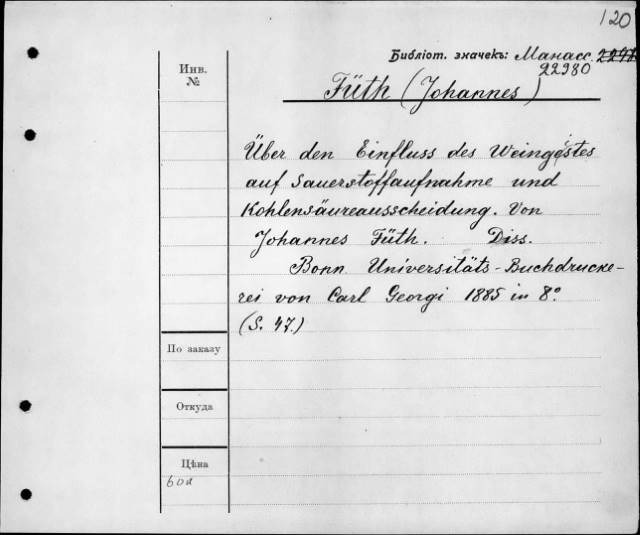 120
Библіот. значекъ: Манасс.
22980
Инв.
№
Füth (Johannes)
Über den Einfluss des Weingeistes
auf Sauerstoffaufnahme und
Kohlensäureausscheidung. Von
Johannes Füth. Diss.
Bonn Universitäts-Buchdrucke-
rei von Carl Georgi 1885 in 8º.
(S. 47.)
По заказу
Откуда
Цѣна